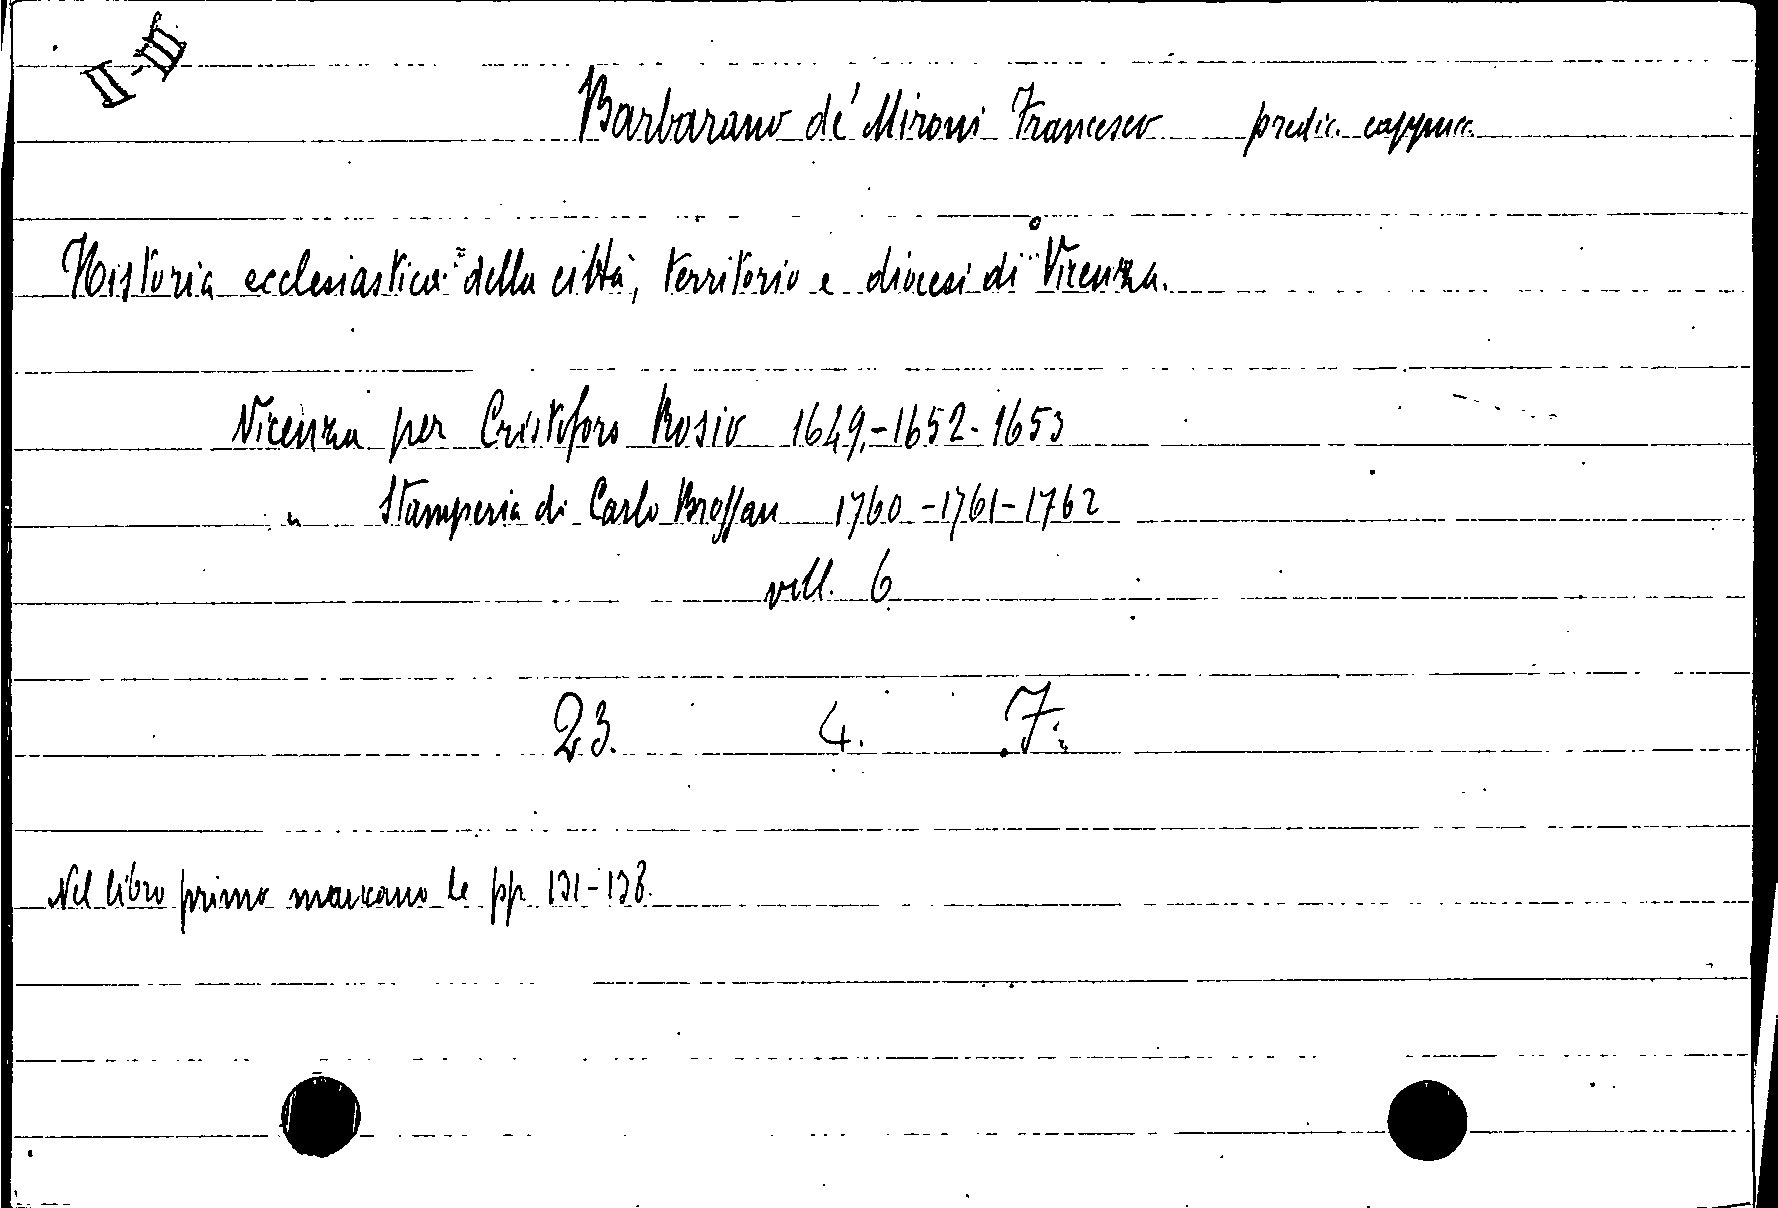 II-III
Barbarano de' Mironi Francesco predic. cappucc.
Historia ecclesiastica della città, territorio e diocesi di Vicenza.
Vicenza per Cristoforo Rosio 1649.-1652-1653
" Stamperia di Carlo Bressan 1760-1761-1762
voll. 6
23. 4. 7.
Nel libro primo mancano le pp. 131-138.